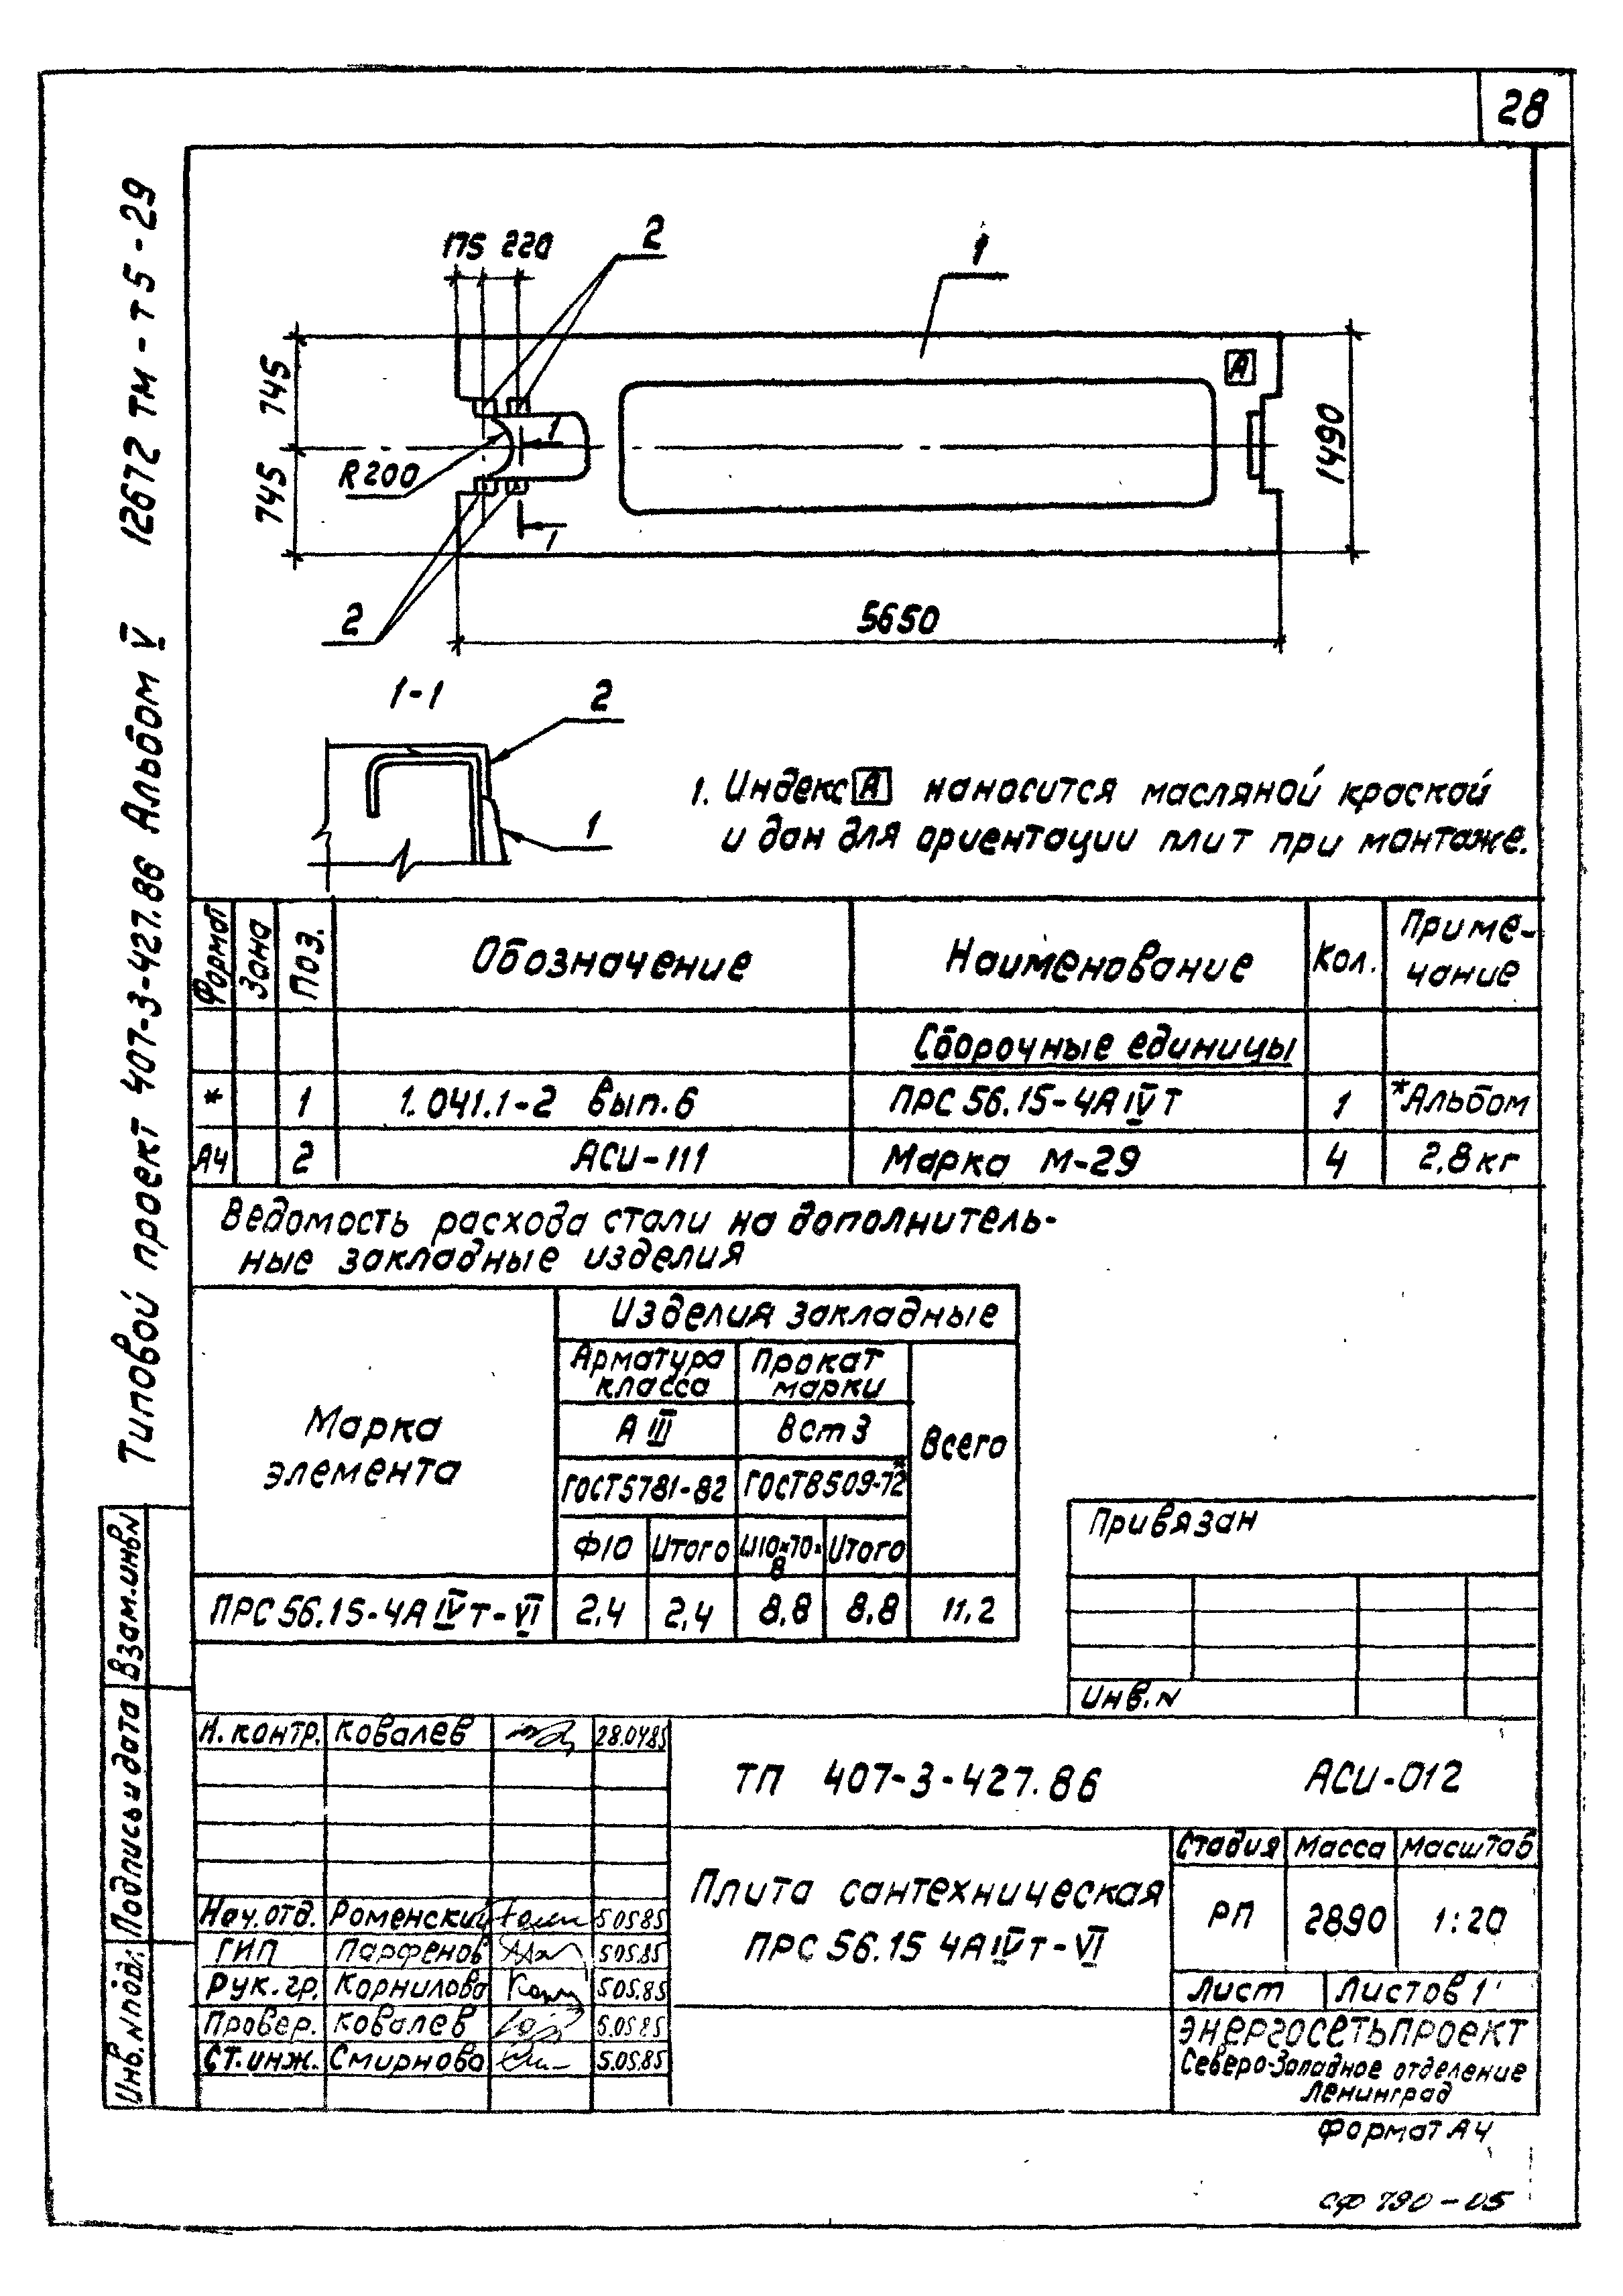 28
Типовой проект 407-3-427.86 Альбом V 12672 тм - т5 - 29
175 220
2
1
А
745
745
R200
1
1
1490
2
5650
1-1
2
1
1. Индекс А наносится масляной краской
и дан для ориентации плит при монтаже.
Формат Зона Поз. Обозначение Наименование Кол. Приме-
чание
Сборочные единицы
* 1 1.041.1-2 вып.6 ПРС 56.15-4А IV Т 1 *Альбом
А4 2 АСИ-111 Марка М-29 4 2,8 кг
Ведомость расхода стали на дополнитель-
ные закладные изделия
Марка
элемента
Изделия закладные
Арматура
класса
Прокат
марки
Всего
А III
В ст 3
ГОСТ 5781-82
ГОСТ 8509-72*
Ф10 Итого 110×70×
8
Итого
ПРС 56.15-4А IV т-VI 2,4 2,4 8,8 8,8 11,2
Привязан
Инв. N
Взам. инв N
Подпись и дата
Инв. N подл.
Н. контр. Ковалев 28.04.85
Нач. отд. Роменский 5.05.85
ГИП Парфенов 5.05.85
Рук. гр. Корнилова 5.05.85
Провер. Ковалев 5.05.85
Ст. инж. Смирнова 5.05.85
ТП 407-3-427.86 АСИ-012
Плита сантехническая
ПРС 56.15 4А IV т-VI
Стадия Масса Масштаб
РП 2890 1:20
Лист Листов 1
Энергосетьпроект
Северо-Западное отделение
Ленинград
Формат А4
сф 790-05